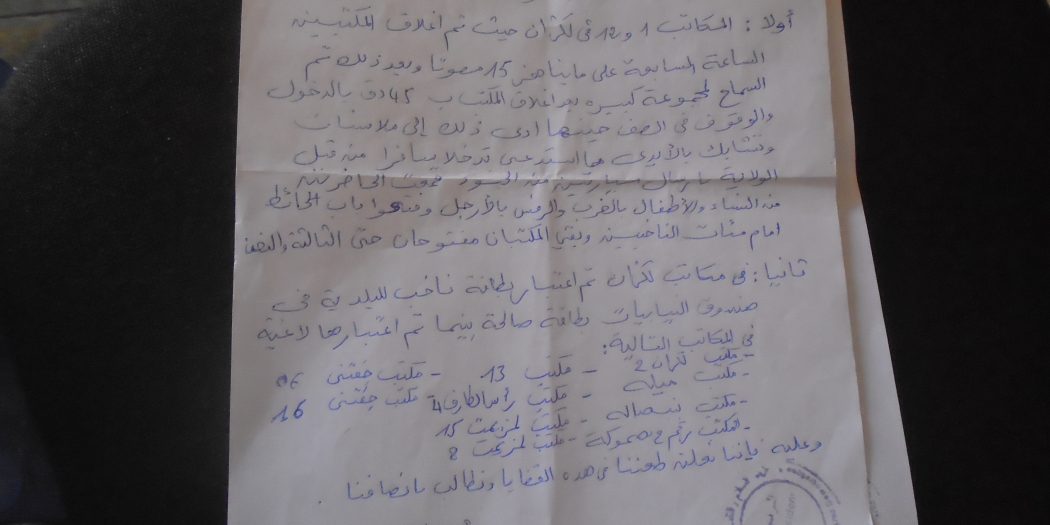 أولا : المكاتب 1 و 12 في لكران حيث تم اغلاق المكتبين
الساعة السابعة على ما يناهز 15 مصوتا وبعد ذلك تم
السماح لمجموعة كبيرة بعد اغلاق المكتب ب 45 دق بالدخول
والوقوف في الصف حينها ادى ذلك إلى ملاسنات
وتشابك بالأيدي مما استدعى تدخلا سافرا من قبل
الولاية بارسال سيارتين من الحاضرين
من النساء والأطفال بالضرب والرفس بالأرجل وفتحوا باب الحائط
امام مئات الناخبين وبقي المكتبان مفتوحان حتى الثالثة والنصف
ثانيا : في مكاتب لكران تم اعتبار بطاقة ناخب للبلدية في
صندوق النيابيات بطاقة صالحة بينما تم اعتبارها لاغية
في المكاتب التالية :
- مكتب لكران 2 - مكتب 13 - مكتب 06
- مكتب - مكتب رأس الطارف 4 مكتب 16
- مكتب - مكتب 15
- مكتب رقم - مكتب 8
وعليه فإننا نعلن طعننا في هذه القضايا ونطالب بانصافنا .